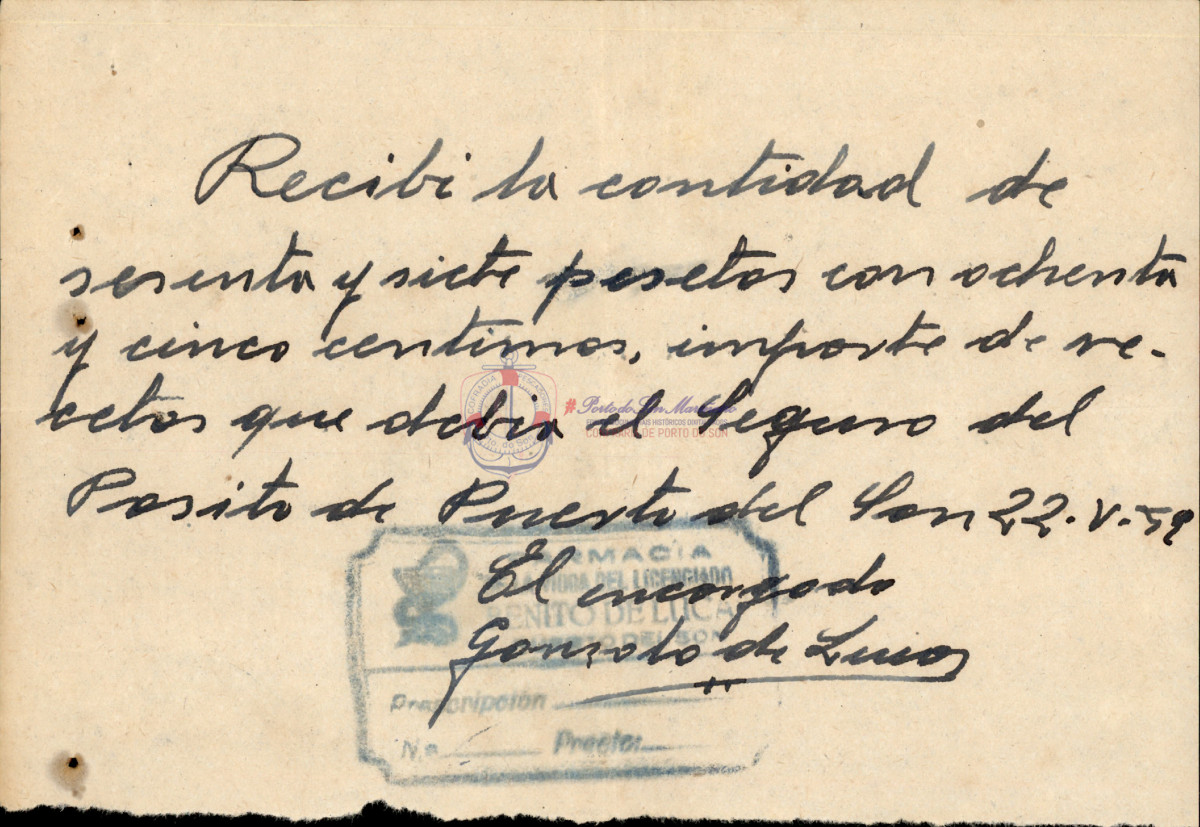 Recibi la cantidad de
sesenta y siete pesetas con ochenta
y cinco centimos, importe de re-
cetas que debia el Seguro del
Posito de Puerto del Son 22-V-59
El encargado
Gonzalo de Lucas
FARMACIA
DEL LICENCIADO
BENITO DE LUCAS
PUERTO DEL SON
Prescripción
No Precio:
COFRADIA PESCADORES
Porto do Son
#PortodoSonMariñeiro
HISTÓRICOS
COFRADÍA DE PORTO DO SON